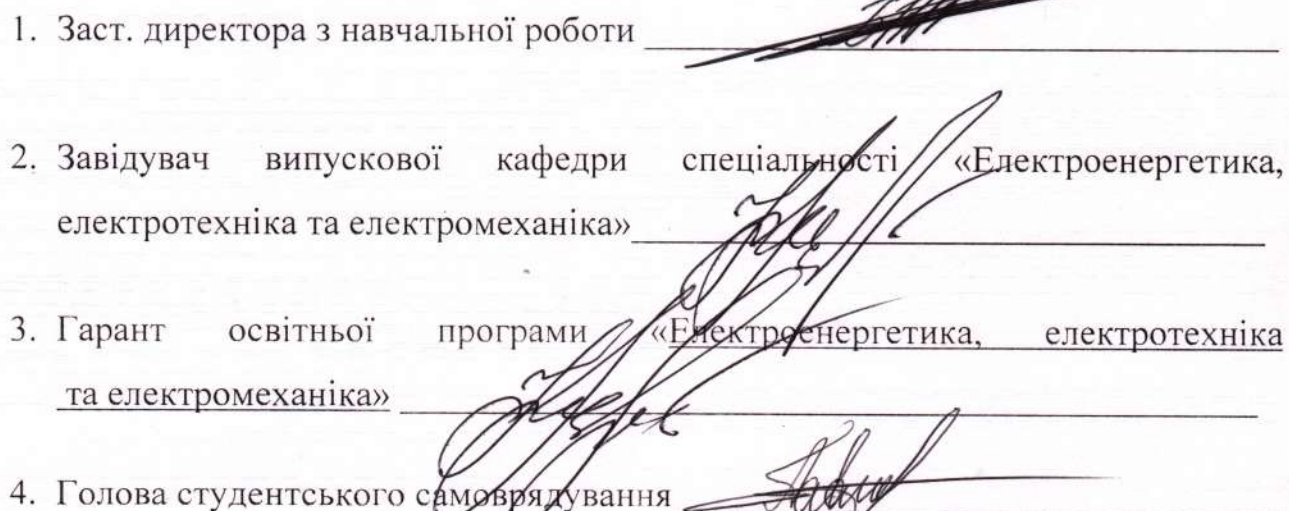 1. Заст. директора з навчальної роботи
2. Завідувач випускової кафедри спеціальності «Електроенергетика,
електротехніка та електромеханіка»
3. Гарант освітньої програми «Електроенергетика, електротехніка
та електромеханіка»
4. Голова студентського самоврядування